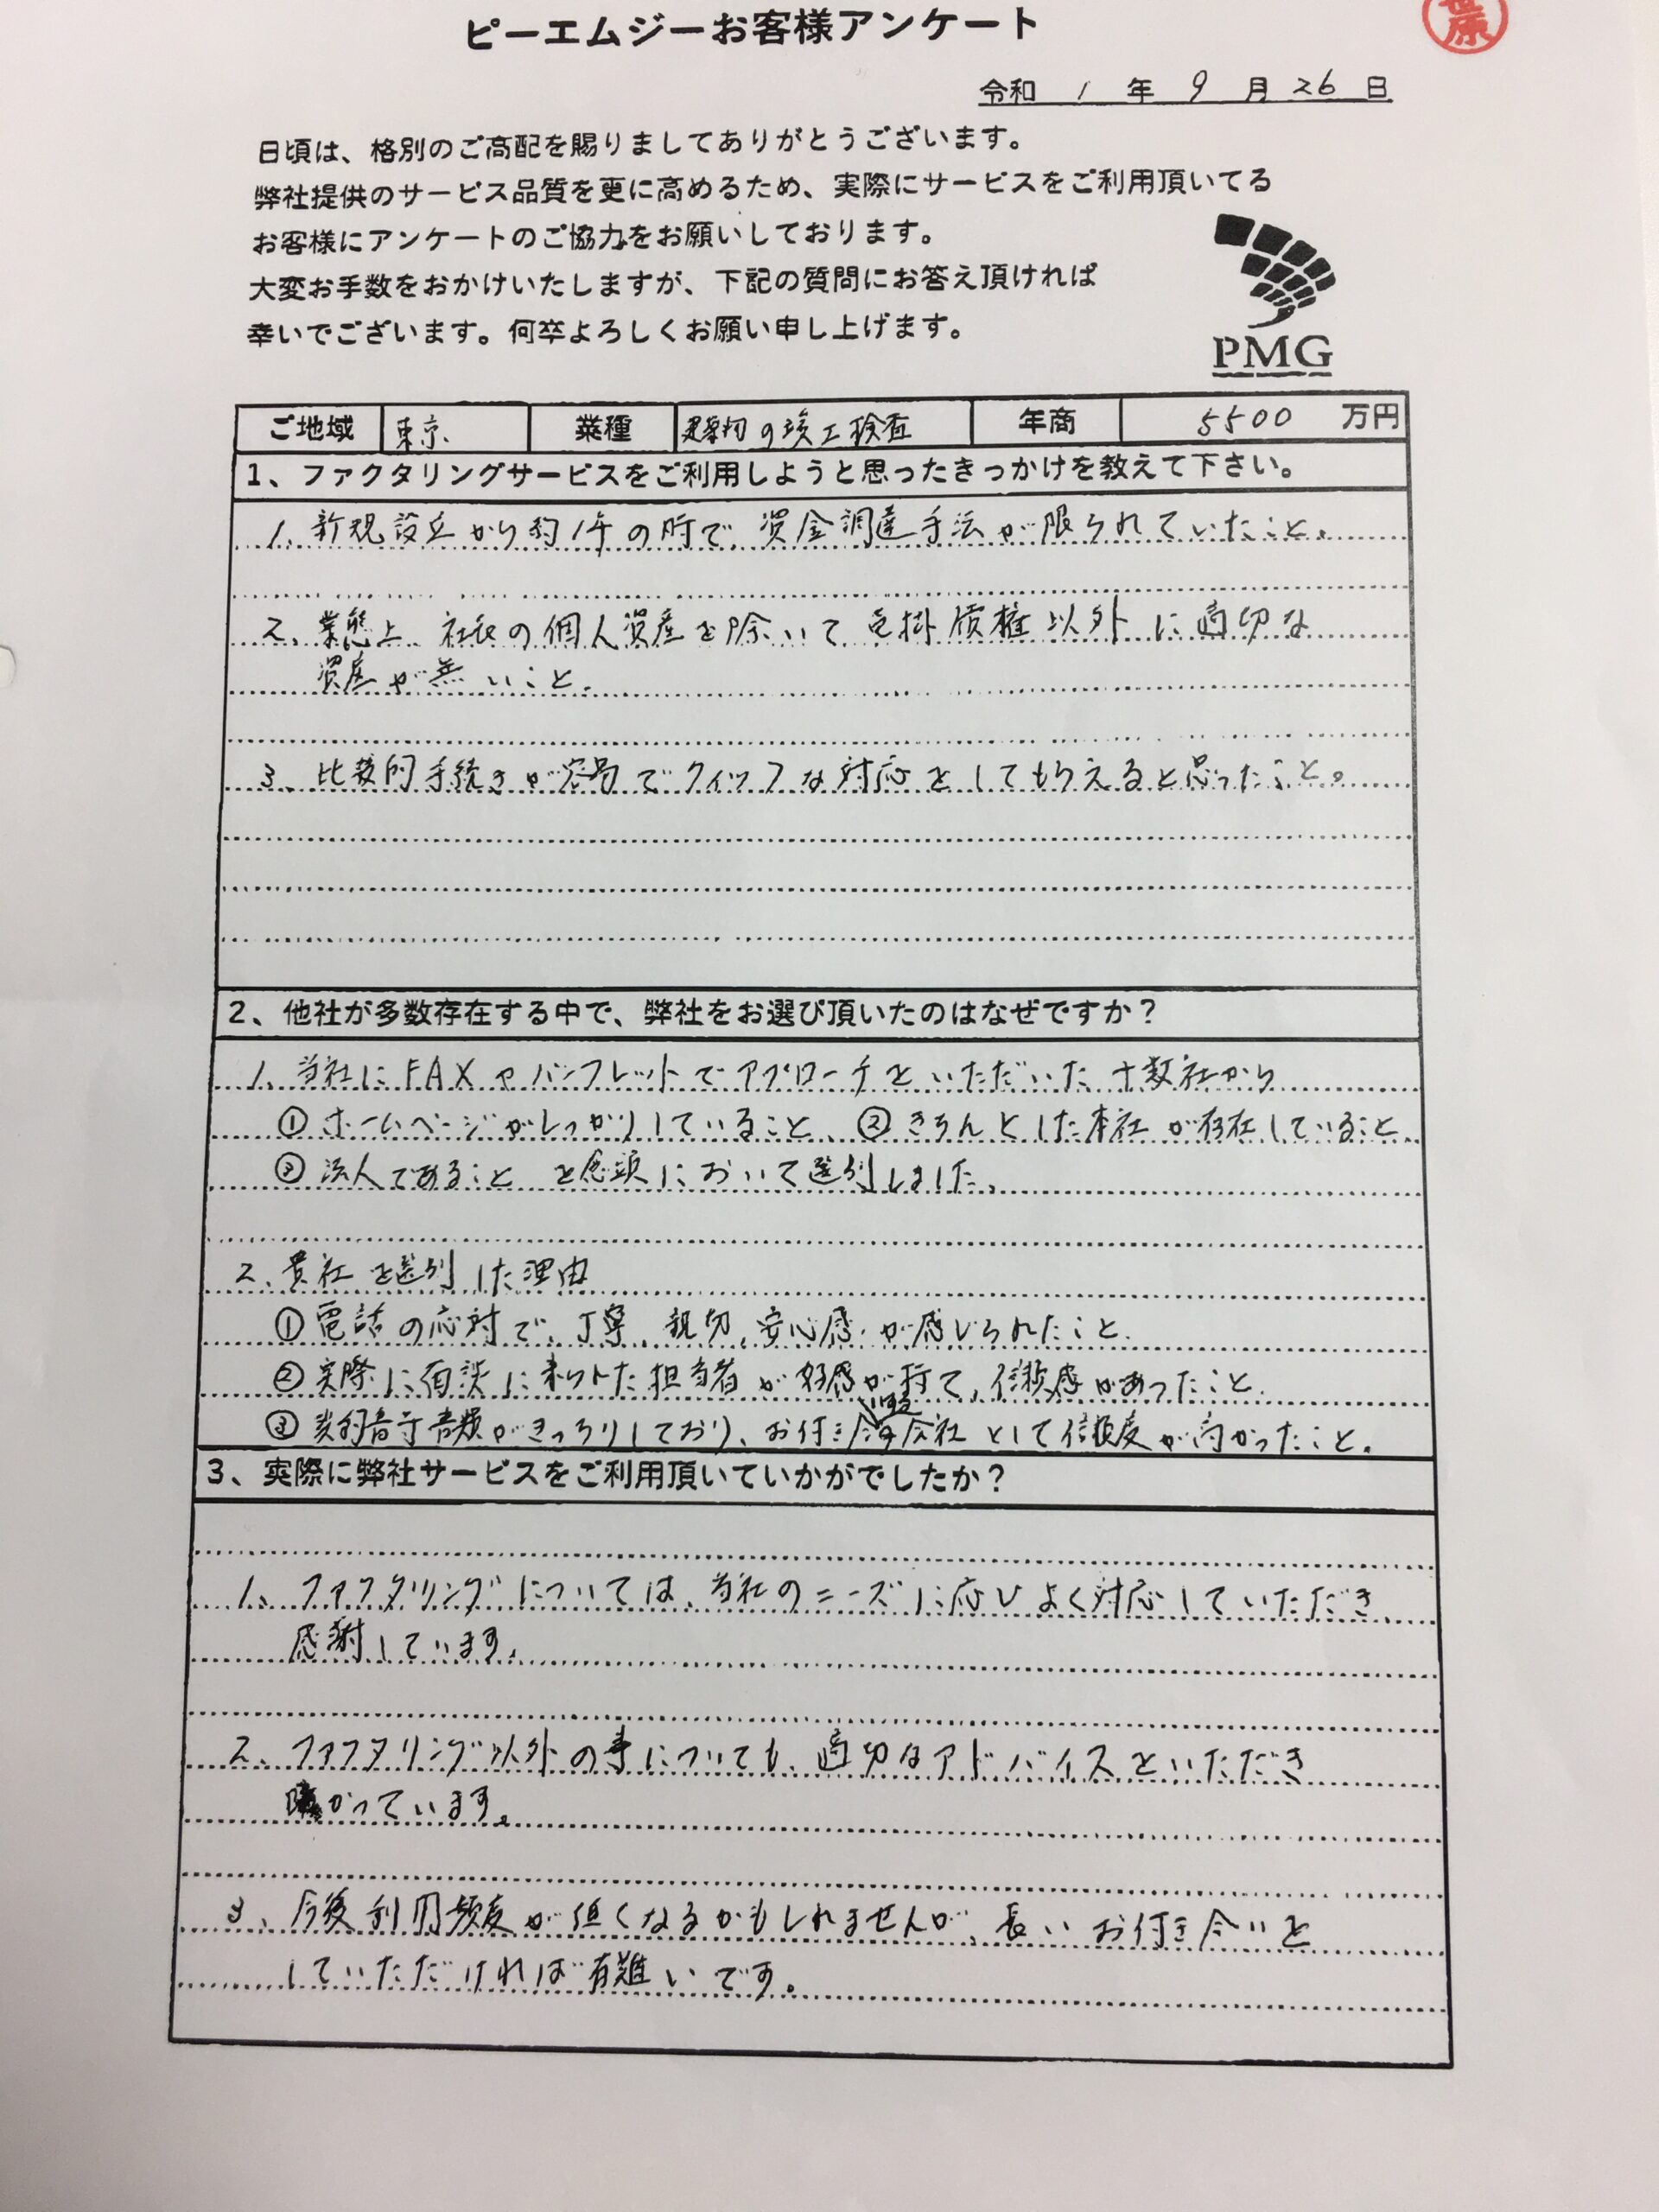 ピーエムジーお客様アンケート
原
令和 1 年 9 月 26 日
日頃は、格別のご高配を賜りましてありがとうございます。
弊社提供のサービス品質を更に高めるため、実際にサービスをご利用頂いてる
お客様にアンケートのご協力をお願いしております。
大変お手数をおかけいたしますが、下記の質問にお答え頂ければ
幸いでございます。何卒よろしくお願い申し上げます。
PMG
ご地域 東京 業種 建築物の竣工検査 年商 5500 万円
1、ファクタリングサービスをご利用しようと思ったきっかけを教えて下さい。
1、新規設立から約1年の時で、資金調達手法が限られていたこと。
2、業態上、社長の個人資産を除いて売掛債権以外に適切な
資産が無いこと。
3、比較的手続きが容易でクイックな対応をしてもらえると思ったこと。
2、他社が多数存在する中で、弊社をお選び頂いたのはなぜですか？
1、当社にFAXやパンフレットでアプローチをいただいた十数社から
①ホームページがしっかりしていること、②きちんとした本社が存在していること、
③法人であること を念頭において選別しました。
2、貴社を選別した理由
①電話の応対で、丁寧、親切、安心感が感じられたこと。
②実際に面談に来られた担当者が好感が持て、信頼感があったこと。
③契約書等書類がきっちりしており、お付き合いする会社として信頼度が高かったこと。
3、実際に弊社サービスをご利用頂いていかがでしたか？
1、ファクタリングについては、当社のニーズに応じよく対応していただき
感謝しています。
2、ファクタリング以外の事についても、適切なアドバイスをいただき
助かっています。
3、今後利用頻度が低くなるかもしれませんが、長いお付き合いを
していただければ有難いです。